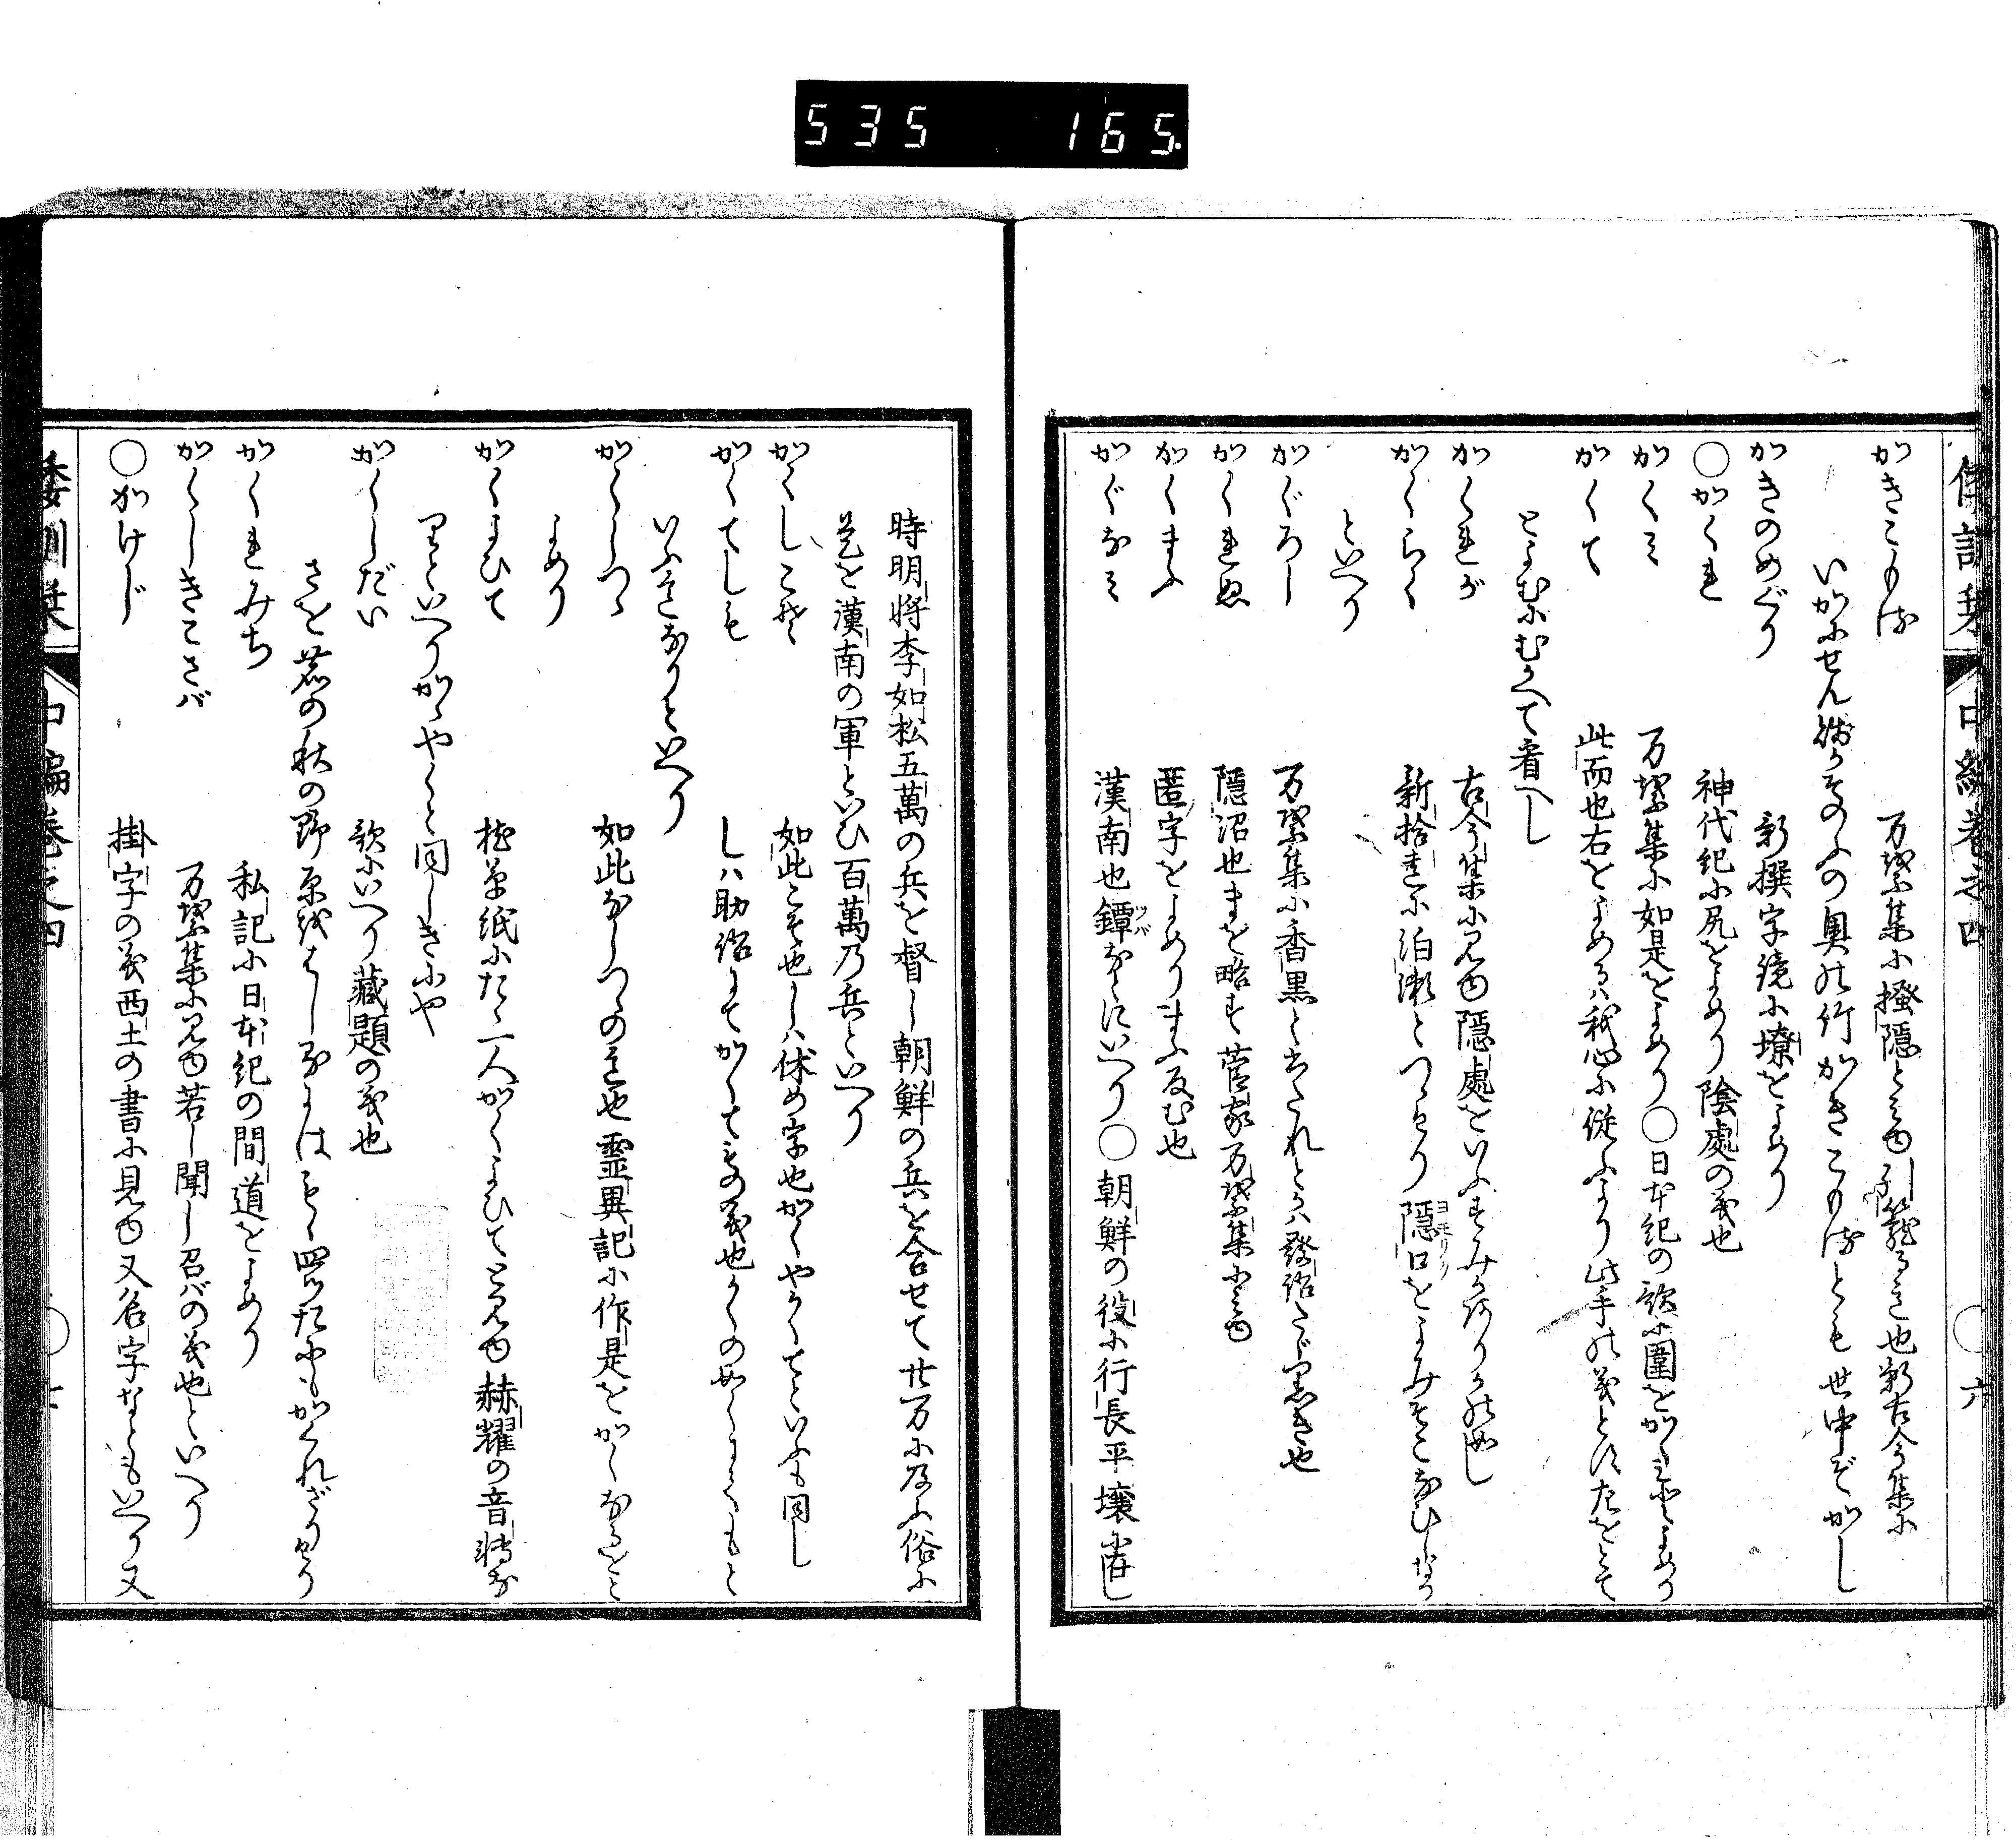 535 165
かきこもる 万葉集に掻隠とみゆ引籠るこゝろ也新古今集に
いかにせん賤かそのふの奥の竹かきこもるとも世中ぞかし
かきのめぐり 新撰字鏡に墩をよめり
○かくれ 神代紀に尻をよめり陰處の義也
かくミ 万葉集に如是をよめり○日本紀の歌に圍をかくミとよめり
かくて 此而也右をよめるハ我心に從ふより此手の義とす左をとて
とよむにむかへて看へし
かくれが 古今集に見ゆ隠處をいふすみかありかの如し
かくらく 新拾遺に泊瀬とつゝけり隠口をよみそこなひしなり
といへり
かぐろし 万葉集に香黒と書これとかハ發語たゞ黒き也
かくれぬ 隠沼也まを略す菅家万葉集にみゆ
かくまふ 匿字をよめりまふ反む也
かぐなミ 漢南也鐔なとにいへり○朝鮮の役に行長平壌に在し
倭訓栞 中編巻之四 ○六
時明將李如松五萬の兵を督し朝鮮の兵を合せて廿万に及ふ俗に
是を漢南の軍といひ百萬乃兵といへり
かくしこそ 如此こそ也しハ休め字也かくやかくてといふも同し
かくてしも しハ助語にてかくてもの義也かくの如くにくもと
いふ意なりといへり
かくしつゝ 如此なしつゝの意也靈異記に作是をかくなるをと
よめり
かくよひて 枕草紙にたゝ一人かくよひてと見ゆ赫耀の音轉な
りといへりかゝやくと同しきにや
かくしだい 歌にいへり藏題の義也
さを鹿の秋の野原をはしるには もゝ四ツたにもかくれざりけり
かくれみち 私記に日本紀の間道をよめり
かくしきこさバ 万葉集に見ゆ若し聞し召バの義也といへり
○かけじ 掛字の義西土の書に見ゆ又名字なともいへり又
倭訓栞 中編巻之四 ○七